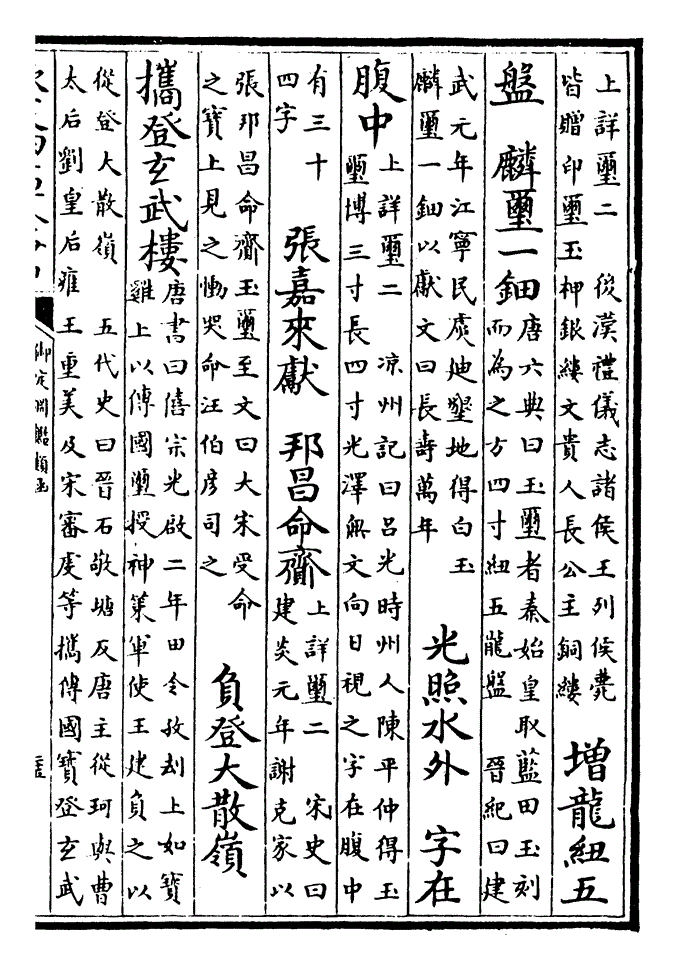 上詳璽二　後漢禮儀志諸侯王列侯薨
皆贈印璽玉柙銀縷文貴人長公主銅縷
增龍紐五
盤　麟璽一鈿
唐六典曰玉璽者秦始皇取藍田玉刻
而為之方四寸紐五龍盤　晉紀曰建
武元年江寧民虞廸墾地得白玉
麟璽一鈿以獻文曰長壽萬年
光照水外　字在
腹中
上詳璽二　凉州記曰呂光時州人陳平仲得玉
璽博三寸長四寸光澤無文向日視之字在腹中
有三十
四字
張嘉來獻　邦昌命齎
上詳璽二　宋史曰
建炎元年謝克家以
張邦昌命齎玉璽至文曰大宋受命
之寶上見之慟哭命汪伯彦司之
負登大散嶺
攜登玄武樓
唐書曰僖宗光啟二年田令孜刦上如寶
雞上以傳國璽授神策軍使王建負之以
從登大散嶺　五代史曰晉石敬塘反唐主從珂與曹
太后劉皇后雍王重美及宋審虔等攜傳國寶登玄武
御定淵鑑類函